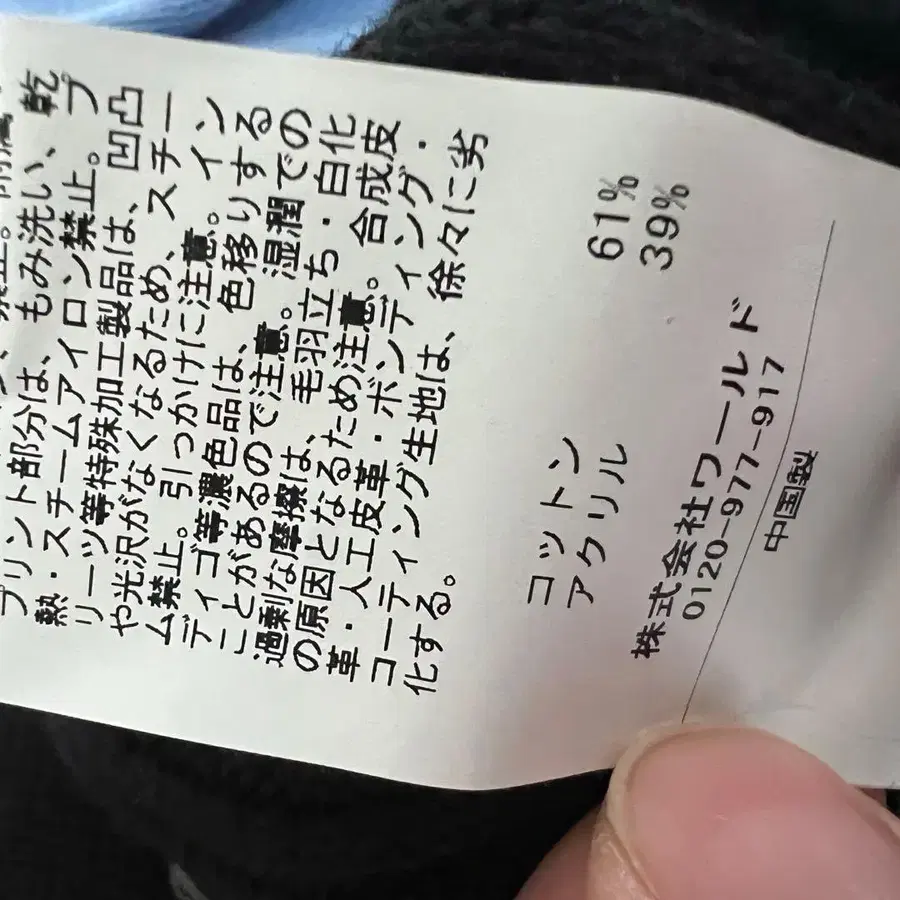 プリント部分は、もみ洗い、乾
熱・スチームアイロン禁止。プ
リーツ等特殊加工製品は、凹凸
や光沢がなくなるため、スチー
ム禁止。引っかけに注意。イン
ディゴ等濃色品は、色移りする
ことがあるので注意。湿潤での
過剰な摩擦は、毛羽立ち・白化
の原因となるため注意。合成皮
革・人工皮革・ボンディング・
コーティング生地は、徐々に劣
化する。
コットン 61%
アクリル 39%
株式会社ワールド
0120-977-917
中国製